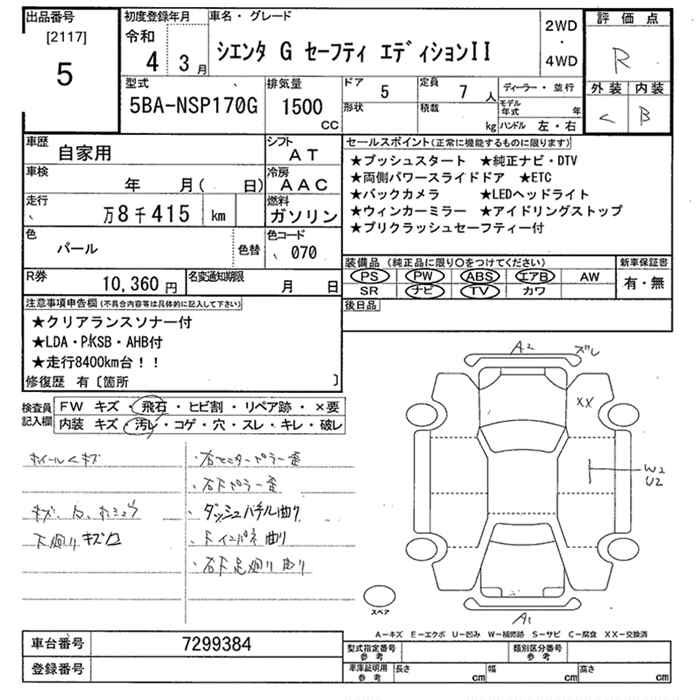 出品番号
[2117]
5
初度登録年月
令和
4 3月
車名・グレード
シエンタ G セーフティ エディションII
2WD
・
4WD
評価点
R
外装 内装
C B
型式
5BA-NSP170G
排気量
1500
CC
ドア
5
形状
定員
7人
積載
kg
ディーラー・並行
モデル年式 年
ハンドル 左・右
車歴
自家用
シフト
AT
車検
年 月( 日)
冷房
AAC
走行
万8千415 km
燃料
ガソリン
色
パール
色替
色コード
070
R券
10,360円
名変通知期限
月 日
セールスポイント(正常に機能するものに限ります)
★プッシュスタート ★純正ナビ・DTV
★両側パワースライドドア ★ETC
★バックカメラ ★LEDヘッドライト
★ウィンカーミラー ★アイドリングストップ
★プリクラッシュセーフティー付
装備品(純正品に限り〇をつけてください)
PS PW ABS エアB AW
SR ナビ TV カワ
新車保証書
有・無
後日品
注意事項申告欄(不具合内容等は具体的に記入して下さい)
★クリアランスソナー付
★LDA・PKSB・AHB付
★走行8400km台!!
修復歴 有〔箇所 〕
検査員記入欄
FW キズ・飛石・ヒビ割・リペア跡・×要
内装 キズ・汚レ・コゲ・穴・スレ・キレ・破レ
ホイールキズ
下廻りキズ
・右センターピラー歪
・右Fピラー歪
・ダッシュパネル曲り
・Fインパネ曲り
・右F足廻り曲り
A2 ズレ
XX
W2
U2
A1
スペア
A−キズ E−エクボ U−凹み W−補修跡 S−サビ C−腐食 XX−交換済
車台番号 7299384
登録番号
型式指定番号
参考
類別区分番号
参考
車庫証明用
参考
長さ cm 幅 cm 高さ cm